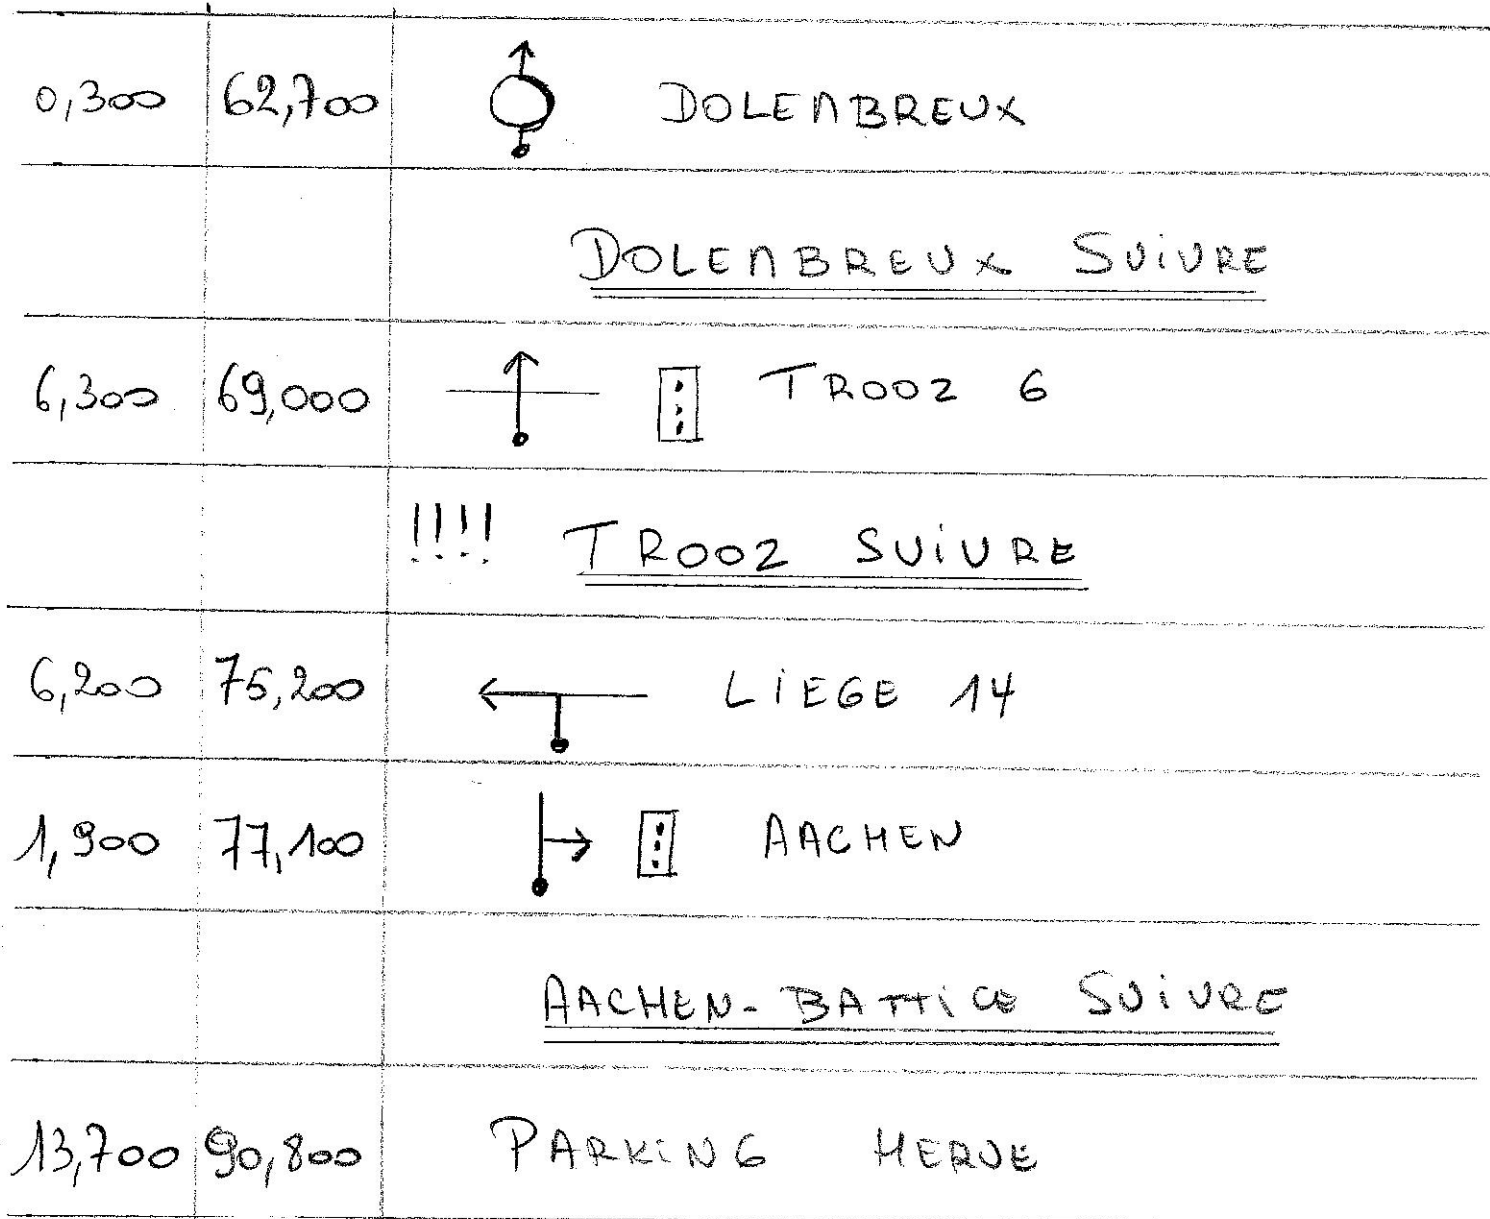 0,300 62,700 DOLEMBREUX
DOLEMBREUX SUiVRE
6,300 69,000 TROOZ 6
!!!! TROOZ SUiVRE
6,200 75,200 LiEGE 14
1,900 77,100 AACHEN
AACHEN-BATTiCE SUiVRE
13,700 90,800 PARKiNG HERVE